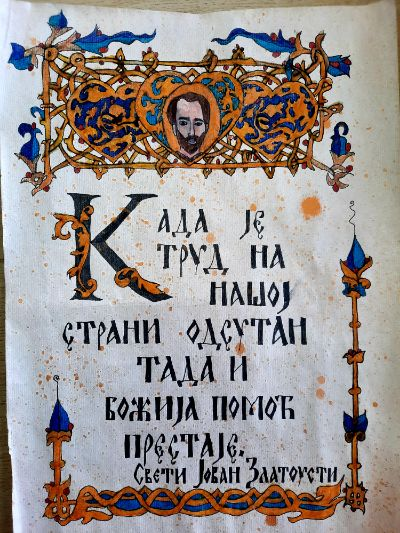 Када је
труд на
нашој
страни одсутан
тада и
Божија помоћ
престаје.
Свети Јован Златоусти